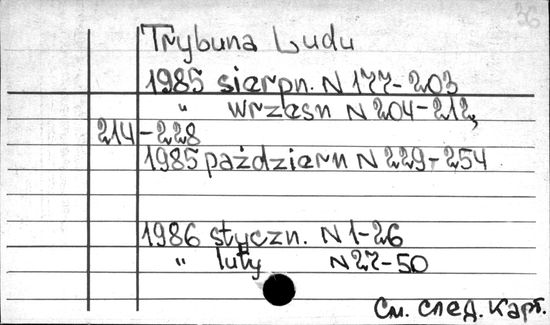 36
Trybuna Ludu
1985 sierpn. N 177-203
" wrzesn N 204-212,
214-228
1985 październ N 229-254
1986 styczn. N 1-26
" luty N 27-50
См. след. карт.